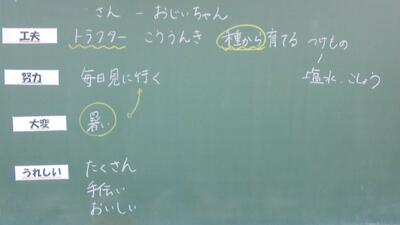 さん － おじいちゃん
工夫 トラクター こううんき 種から育てる つけもの
塩水、こしょう
努力 毎日見に行く
大変 暑い
うれしい たくさん
手伝い
おいしい